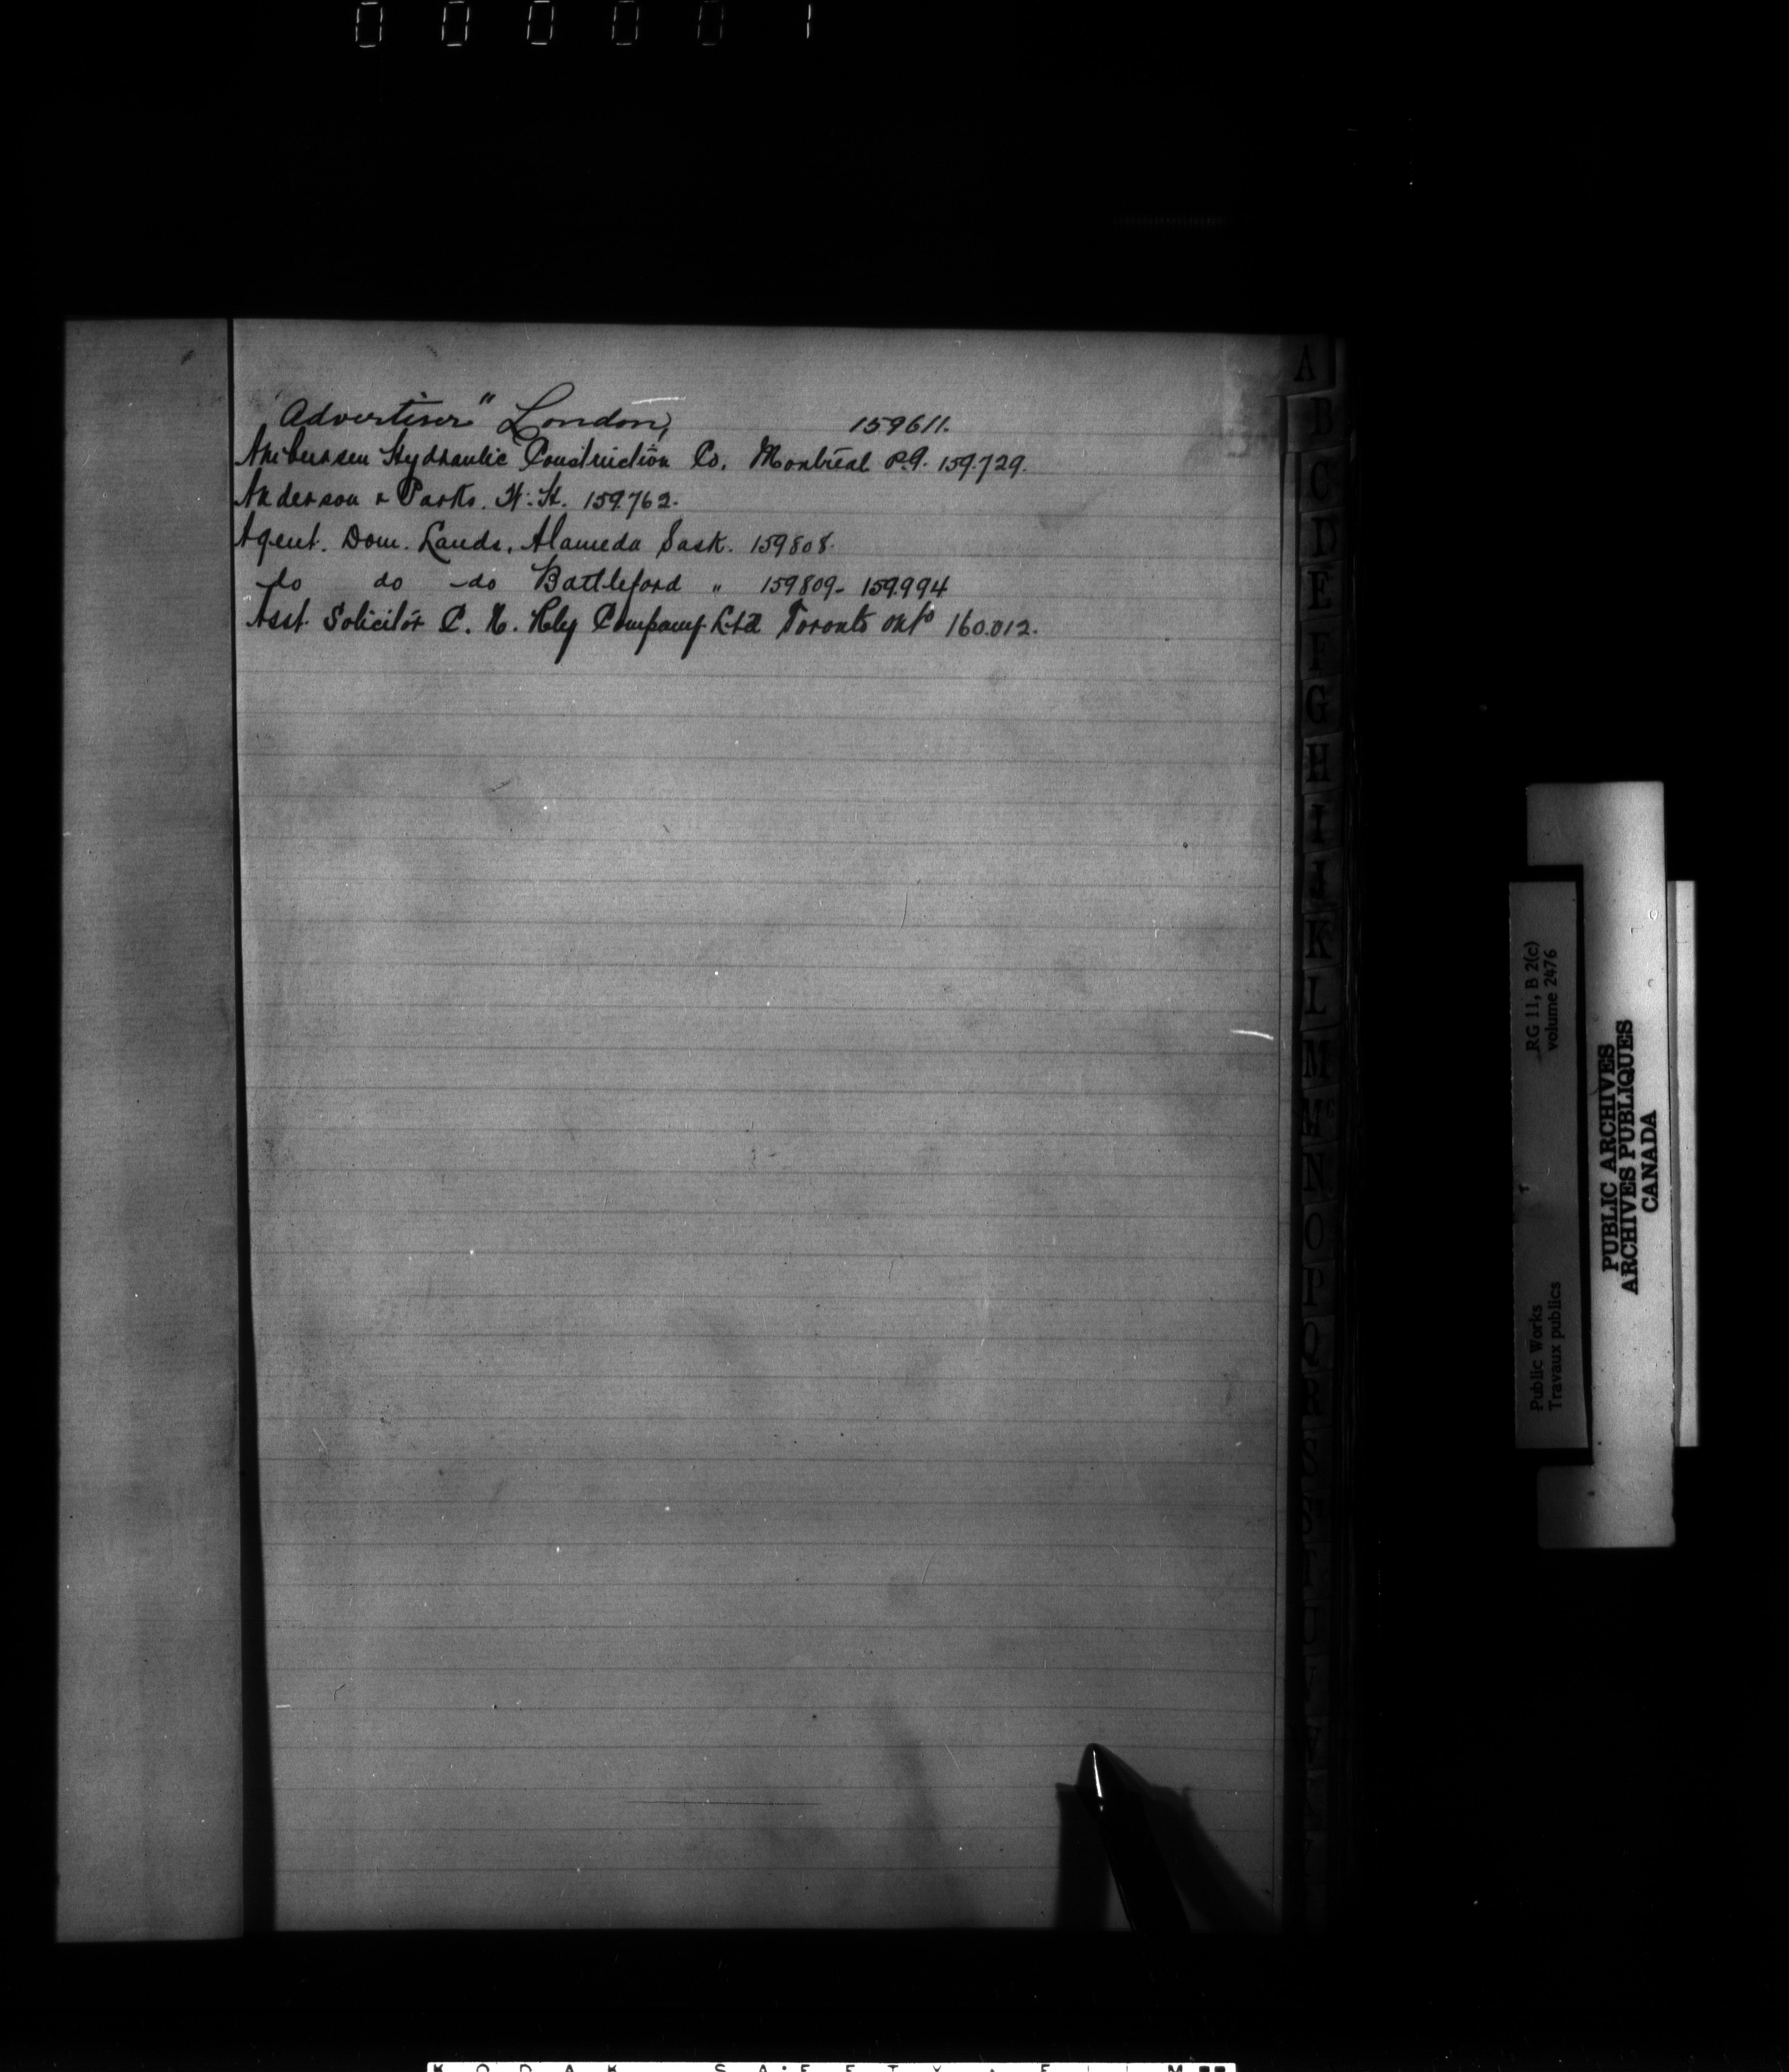 000001
"Advertiser" London, 159611.
Ambursen Hydraulic Construction Co. Montreal P.Q. 159.729.
Anderson & Parks. 159762.
Agent. Dom. Lands, Alameda Sask. 159808.
do do do Battleford " 159809- 159.994
Asst. Solicitor C. N. Rly Company Ltd Toronto Ont° 160.012.
A
B
C
D
E
F
G
H
I
J
K
L
M
Mc
N
O
P
Q
R
S
T
U
V
RG 11, B 2(c)
volume 2476
Public Works
Travaux publics
PUBLIC ARCHIVES
ARCHIVES PUBLIQUES
CANADA
KODAK SAFETY FILM